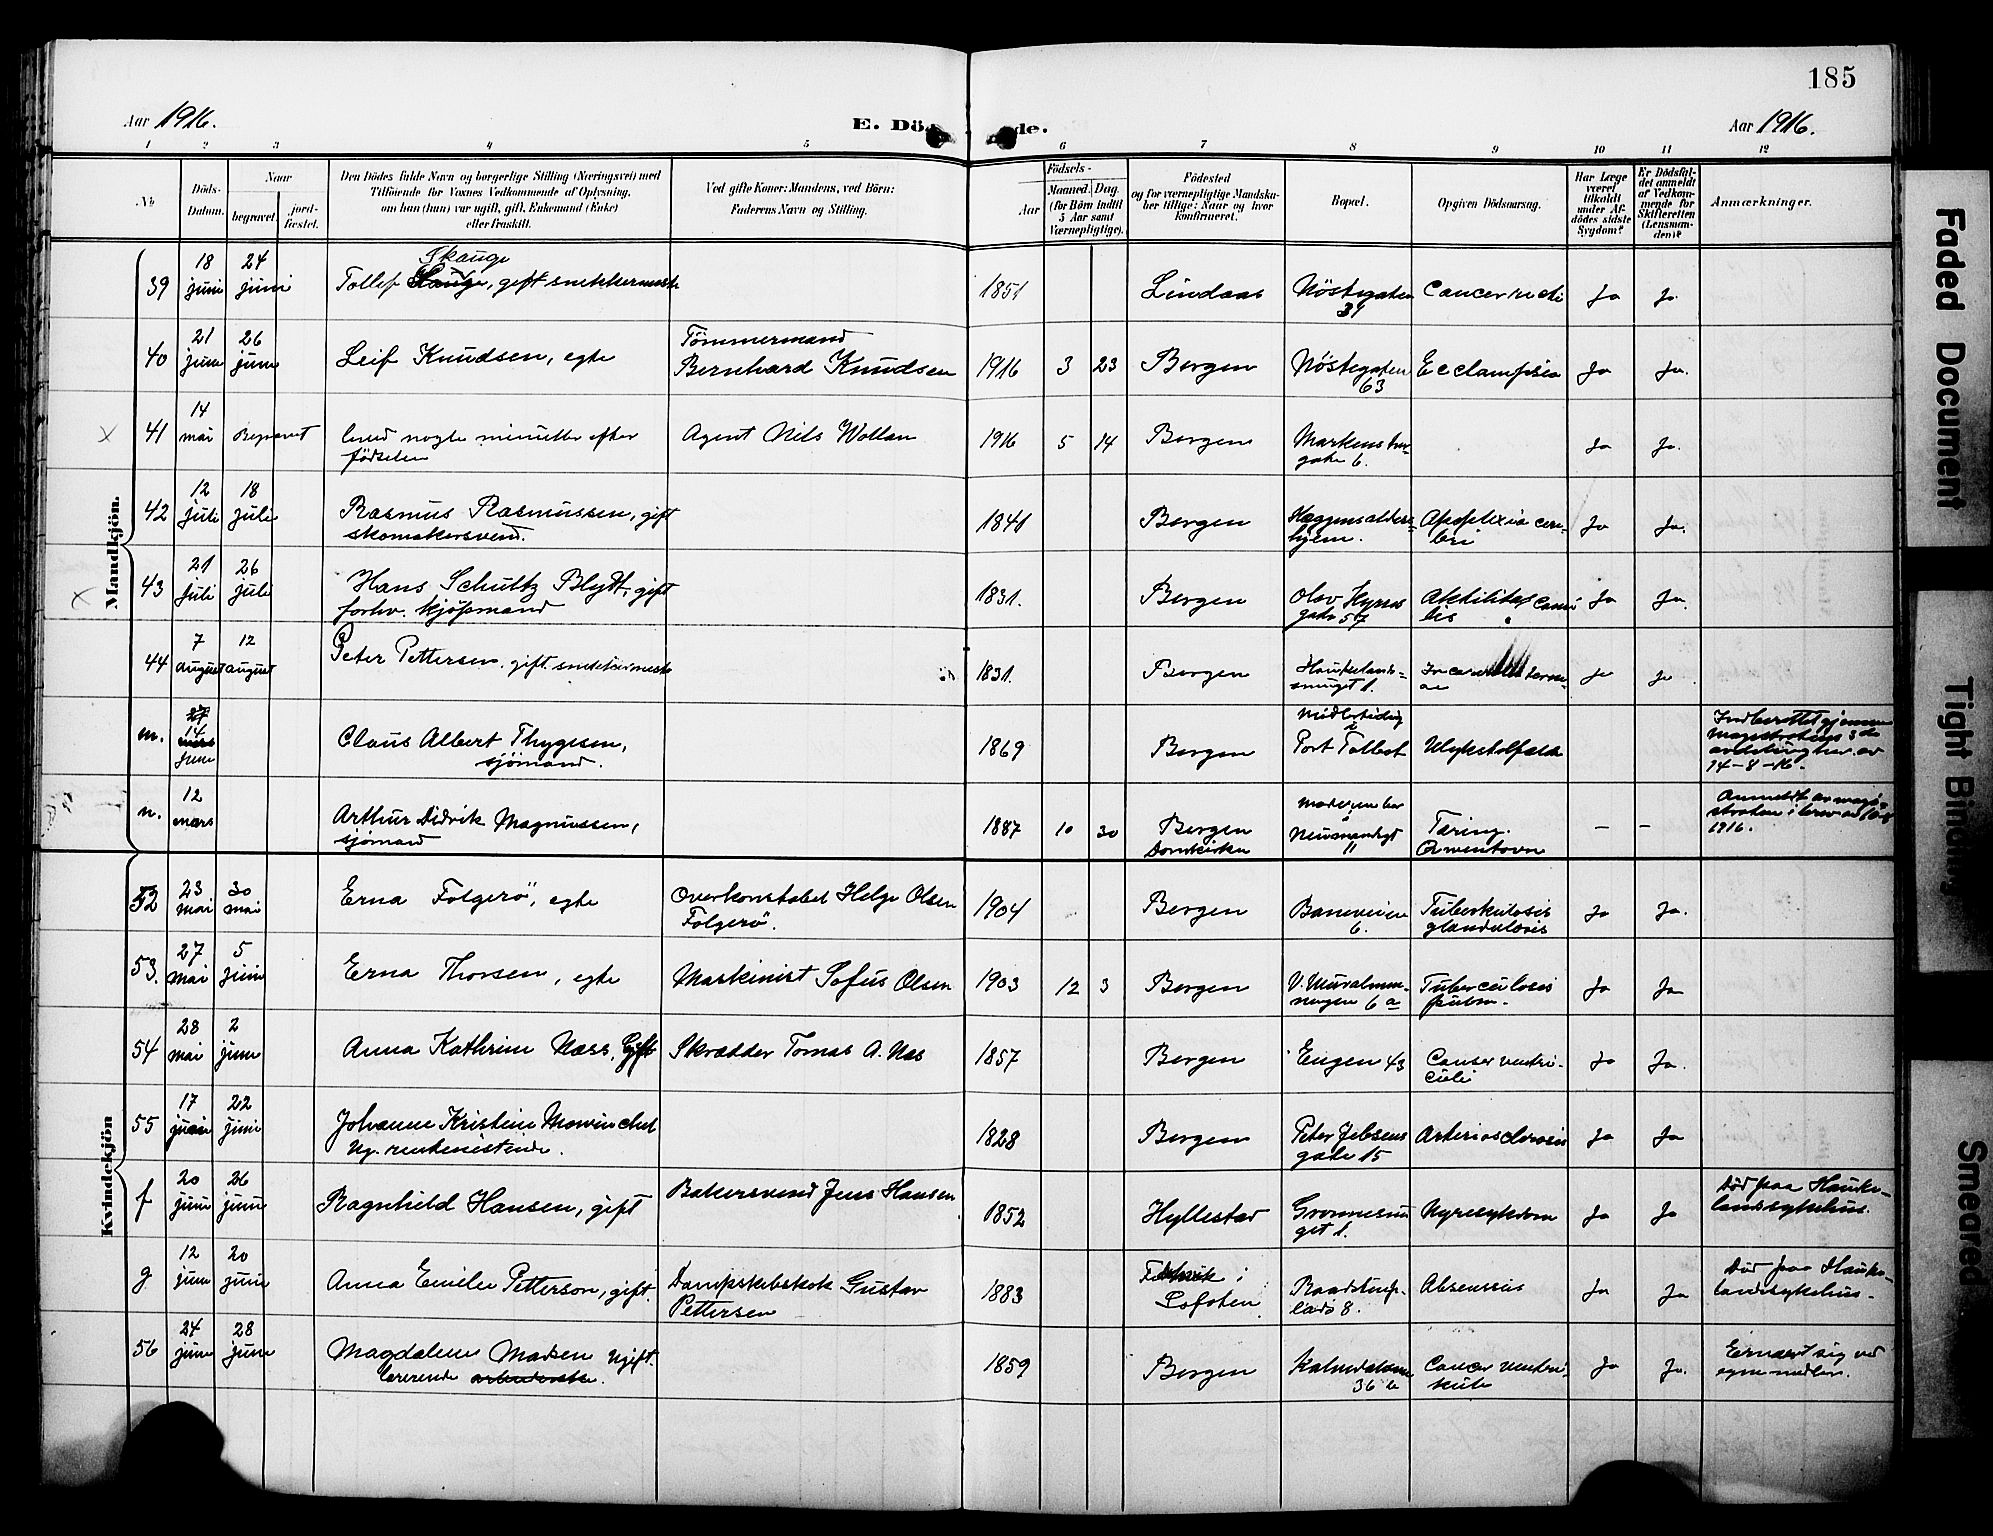 185
Aar 1916.
E. Dö de.
Aar 1916.
1 2 3 4 5 6 7 8 9 10 11 12
No
Döds-Datum.
Naar
begravet.
jord-fæstet.
Den Dödes fulde Navn og borgerlige Stilling (Næringsvei) med
Tilföiende for Voxnes Vedkommende af Oplysning,
om han (hun) var ugift, gift, Enkemand (Enke)
eller fraskilt.
Ved gifte Koner: Mandens, ved Börn:
Faderens Navn og Stilling.
Födsels-
Aar
Maaned. Dag.
(for Börn indtil
5 Aar samt
Værnepligtige).
Födested
og for værnepligtige Mandska-
ber tillige: Naar og hvor
konfirmeret.
Bopæl.
Opgiven Dödsaarsag.
Har Læge
været
tilkaldt
under Af-
dödes sidste
Sygdom?
Er Dödsfal-
det anmeldt
af Vedkom-
mende for
Skifteretten
(Lensman-
den)?
Anmærkninger.
Mandkjön.
39 18 juni 24 juni Tollef Skauge, gift snekkermest 1851 Lindaas Nöstegaten 31 Cancer Ja Ja
40 21 juni 26 juni Leif Knudsen, egte Tömmermand Bernhard Knudsen 1916 3 23 Bergen Nöstegaten 63 Ecclampsia Ja Ja.
41 14 mai Begravet Leved nogle minutter efter födselen Agent Nils Wollan 1916 5 14 Bergen gate 6. Ja Ja.
42 12 juli 18 juli Rasmus Rasmussen, gift skomakersvend. 1841 Bergen hjem. Apoplexia cere-bri Ja Ja.
43 21 juli 26 juli Hans Schultz Blytt, gift forhv. kjöpmand 1831. Bergen Olav Kyrres gate 57 Ja Ja.
44 7 august 12 august Peter Pettersen. gift. snekkermest 1831. Bergen Haukelands-smuget 1. Ja Ja
m. 14 juni Claus Albert Thygesen, sjömand. 1869 Bergen Midlertidig i Port Talbot Ulykestilfælde Indberettet gjennem Magistratens 3de avdeling av 14-8-16.
n. 12 mars Arthur Didrik Magnussen, sjömand 1887 10 30 Bergen Domkirken 11 Tæring. — — Anmeldt av magi-straten i brev av 1916.
Kvindekjön
52 23 mai 30 mai Erna Folgerö, egte Overkonstabel Helge Olsen Folgerö. 1904 Bergen Baneveien 6. Tuberkulosis glandularis Ja Ja.
53. 27 mai 5 juni Erna Thorsen, egte Maskinist Sofus Olsen 1903 12 3 Bergen V. Muralmen-ningen 6 a Tuberculosis pulm. Ja Ja
54 28 mai 2 juni Anna Kathrine Næss, Gift Skrædder Tomas A. Næs 1857 Bergen Engen 43 Cancer ventri-culi Ja Ja.
55 17 juni 22 juni Johanne Kristine Mowinckel Ug. rentenistinde. 1828 Bergen Peter Jebsens gate 15 Arteriosclerosis Ja Ja
f 20 juni 26 juni Ragnhild Hansen, gift Bakersvend Jens Hansen 1852 Hyllestad Grønnesmu get 1. Nyresykdom Ja Ja Död paa Hauke-landssykehus.
g. 12 juni 20 juni Anna Emilie Petterson, gift. Dampskibskok Gustav Pettersen 1883 i Lofoten Raadstupl-lads 8. Ja Ja Död paa Hauke-landssykehus.
56 24 juni 28 juni Magdalene Madsen Ugift. Lærerinde 1859 Bergen Kalvedalsvn 36 b Cancer ventri-kuli Ja Ja. Ernært sig ved egne midler.
Faded Document
Tight Binding
Smeared